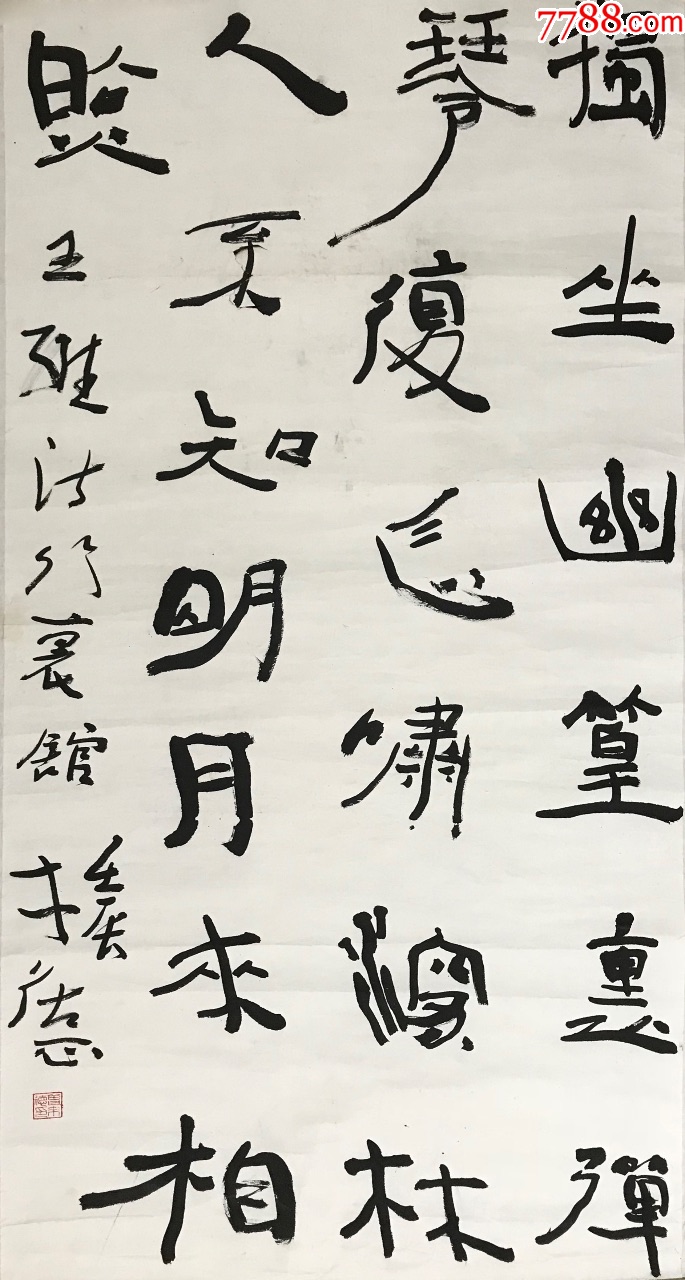 7788.com
獨坐幽篁裏彈
琴復長嘯深林
人不知明月來相
照王維詩竹裏館
壬辰